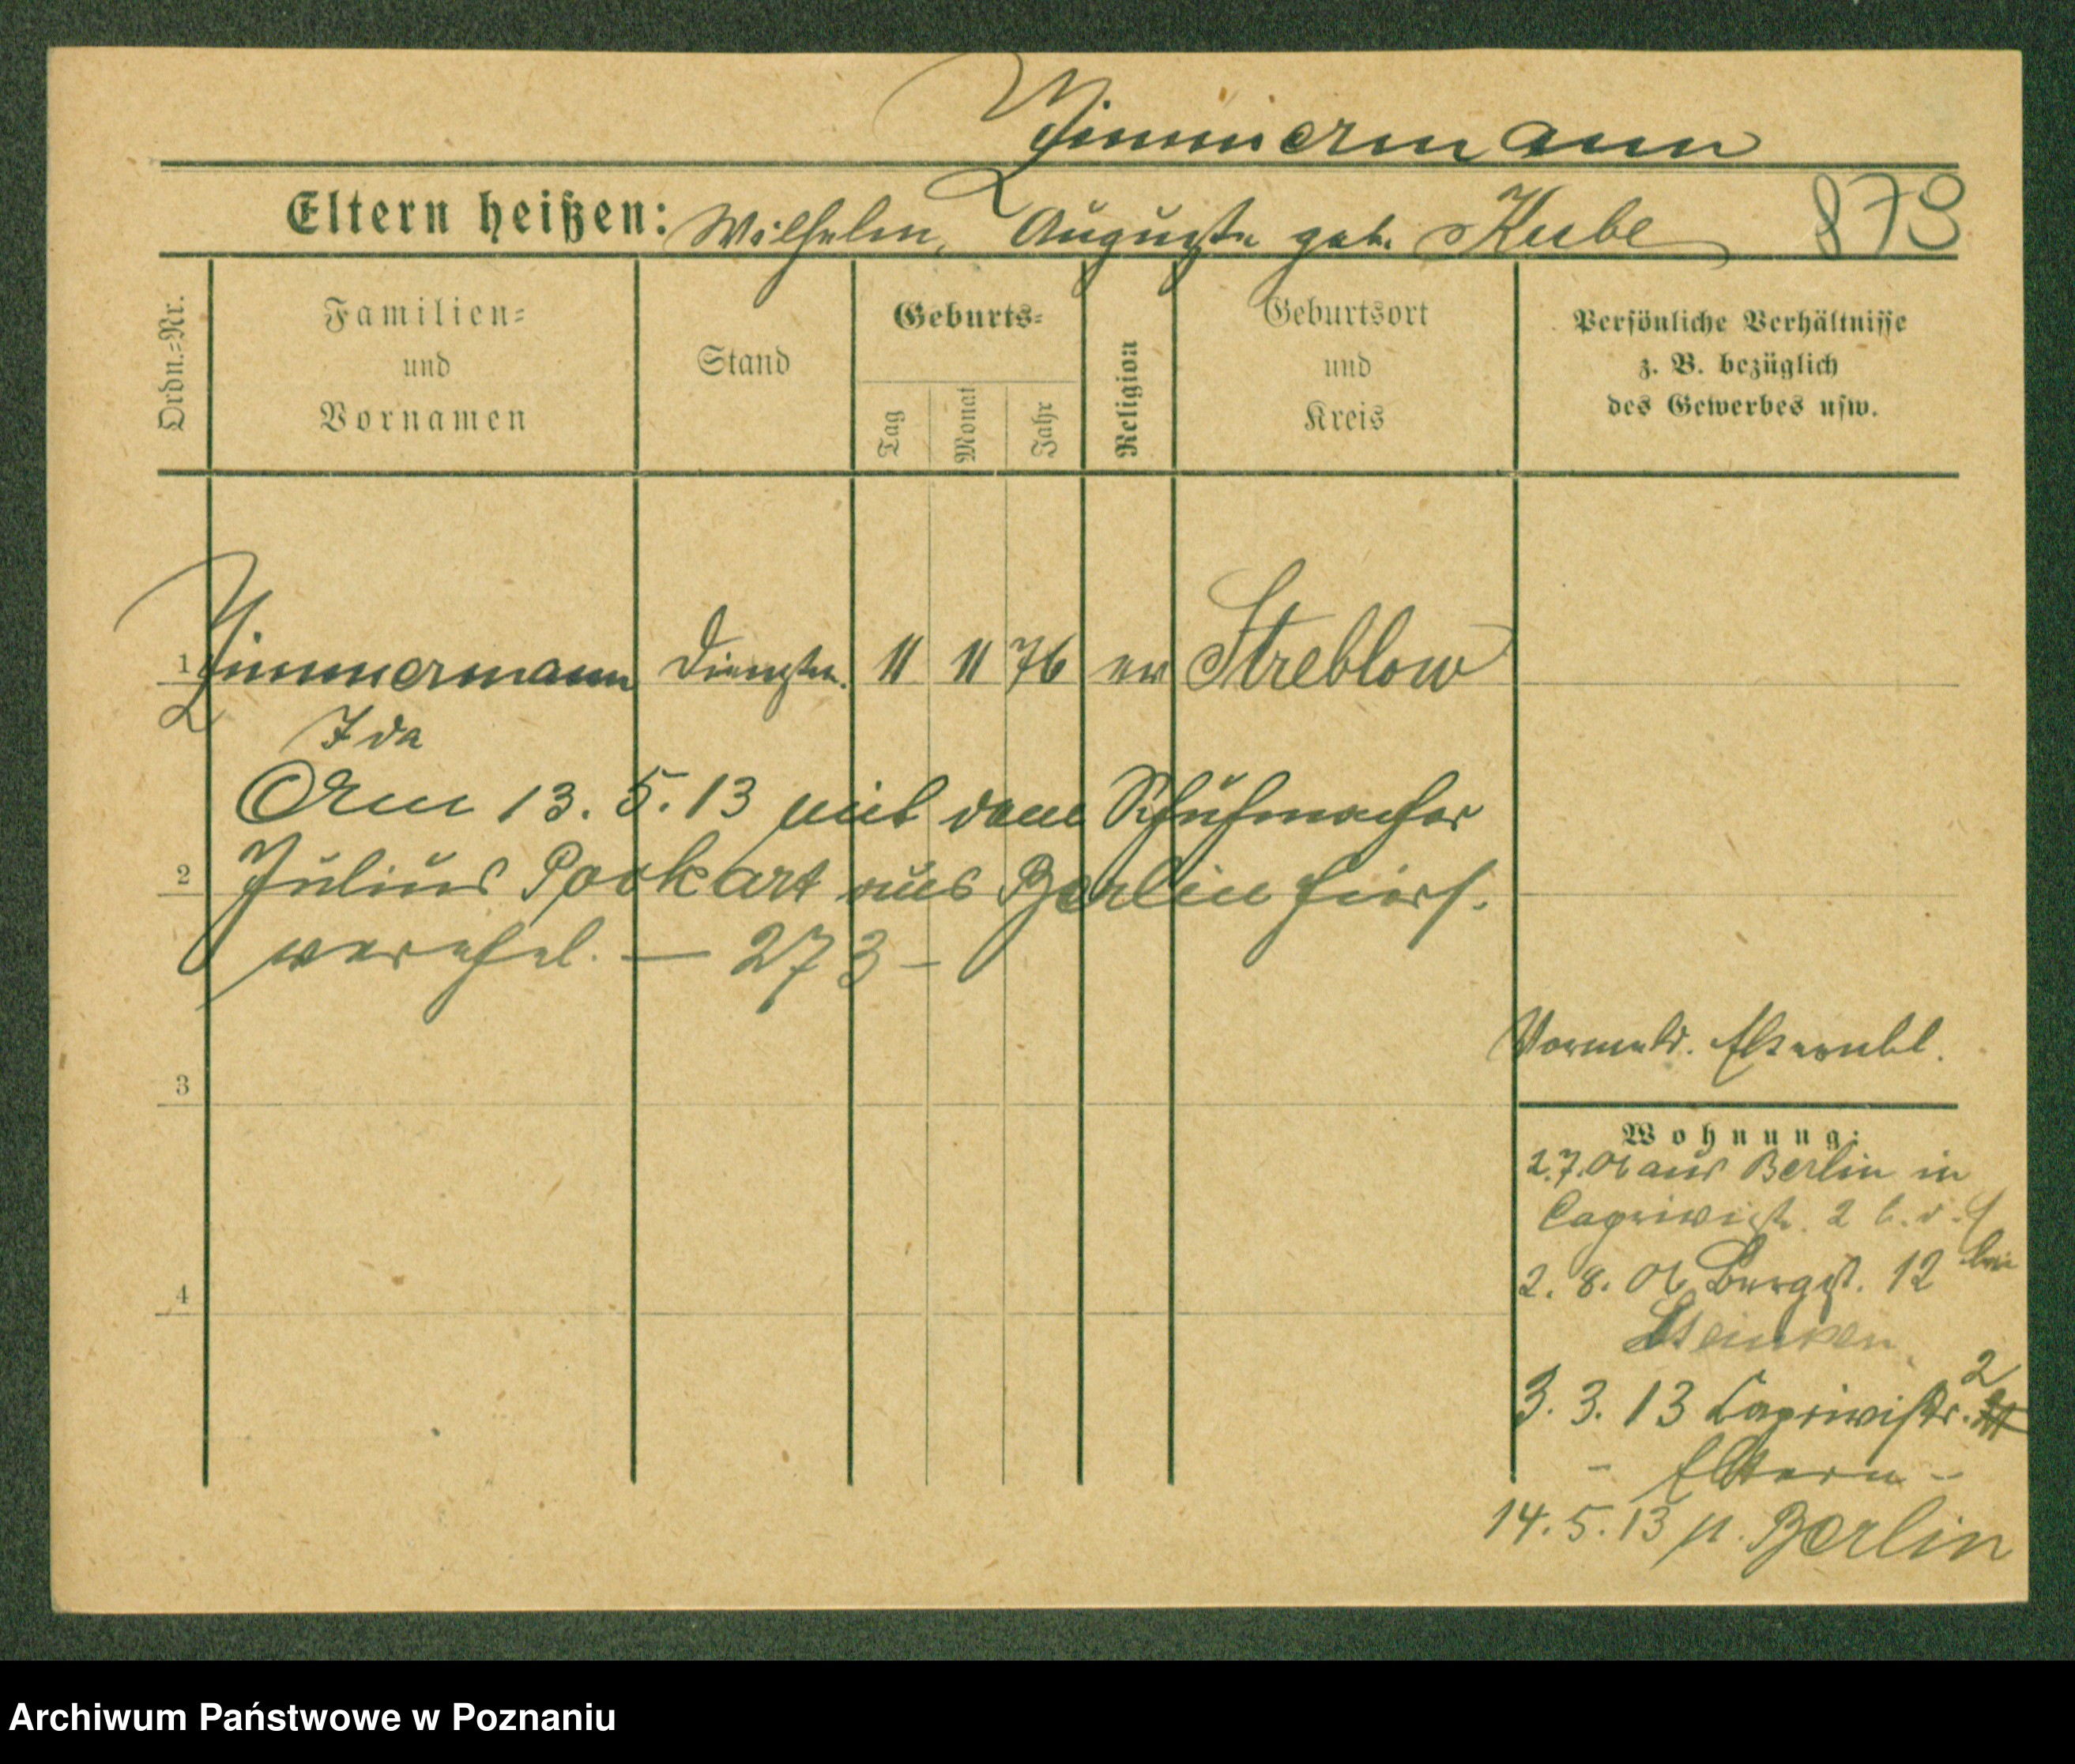 Zimmermann
Eltern heißen: Wilhelm, Auguste geb. Kube 879
Ordn.=Nr.
Familien=
und
Vornamen
Stand
Geburts=
Tag
Monat
Jahr
Religion
Geburtsort
und
Kreis
Persönliche Verhältnisse
z. B. bezüglich
des Gewerbes usw.
1 Zimmermann Dienstm. 11 11 76 ev Streblow
Ida
Am 13. 5. 13 mit dem Schuhmacher
2 Julius aus Berlin hiers.
verehel. — 273 —
3
4
Wohnung:
2.7.06 aus Berlin in
Caprivistr. 2
2. 8. 06 Bergst. 12 bei
3. 3. 13 Caprivistr. 2
- Eltern -
14. 5. 13 n. Berlin
Archiwum Państwowe w Poznaniu